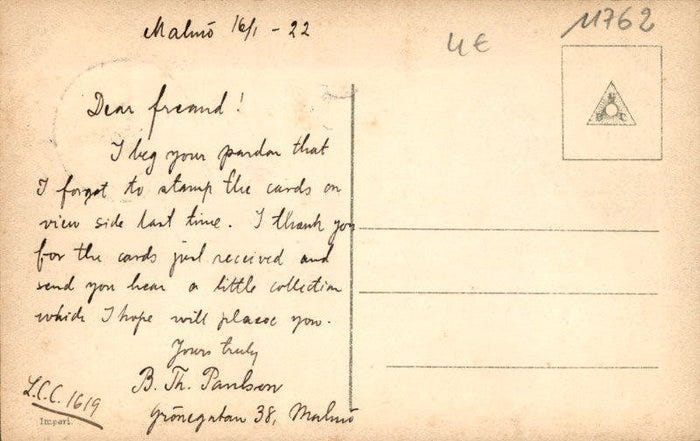 Malmö 16/1 - 22
4 €
11762
Dear freand!
I beg your pardon that
I forgot to stamp the cards on
view side last time. I thank you
for the cards just received and
send you hear a little collection
which I hope will plaese you.
Yours truly
B. Th. Paulson
Grönegatan 38, Malmö
L.C.C. 1619
Import.